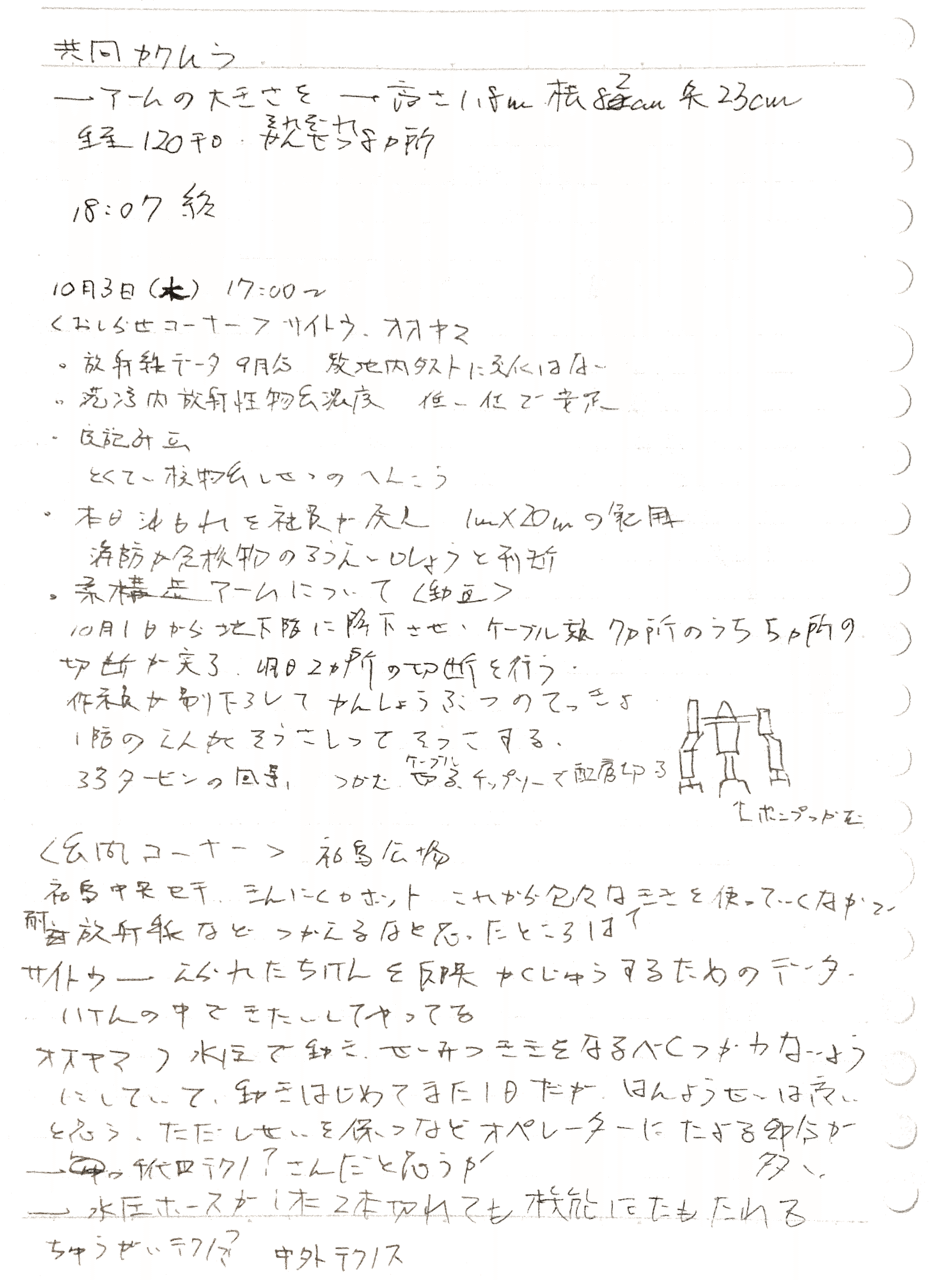 共同 カクムラ
→アームの大きさを → 高さ1.8m 横82cm 奥23cm
重量 120キロ. かんせつ 8カ所
それぞれ
18:07 終
10月3日(木) 17:00〜
<おしらせコーナー> サイトウ、オオヤマ
・放射線データ 9月分 敷地内ダストに変化はない
・港湾内放射性物質濃度 低い位で安定
・皮記み立
とくてい核物質しせつのへんこう
・本日油もれを社員が発見 1m×20mの範囲
消防が危険物のろうえいじしょうと判断
・柔構造アームについて<動画>
10月1日から地下階に降下させ、ケーブル類 7カ所のうち5カ所の
切断が完了. 明日2カ所の切断を行う.
作業員が創り下ろして かんしょうぶつのてっきょ
1階の えんかくそうさしつで そうさする.
33タービンの回の つかむ. ケーブル 切る. チップソーで配管切る
↑ポンプつかむ
<質問コーナー> 福島広場
福島中央テレ. きんにくロボット これから色々なききを使っていくなかで
耐放射線など つかえるなと思ったところは?
サイトウ→ えられたちけんを反映 かくじゅうするためのデータ.
いけんの中で きたいしてやってる
オオヤマ) 水圧で動き. せいみつききをなるべくつかわないよう
にしていて、動きはじめてまだ1日だが、はんようせいは高い
と思う、ただしせいを保つなど オペレーターに たよる部分が
多い.
→ 千代田テクノ?さんだと思うが
→ 水圧ホースが1本2本切れても 機能はたもたれる
ちゅうがいテクノ? 中外テクノス